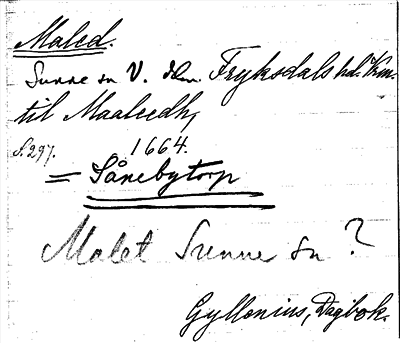 Maled.
Sunne sn V. Fryksdals hd. Vrm.
til Maaledh,
1664.
S. 297.
= Sånebytorp
Malet Sunne sn ?
Gyllenius, Dagbok.